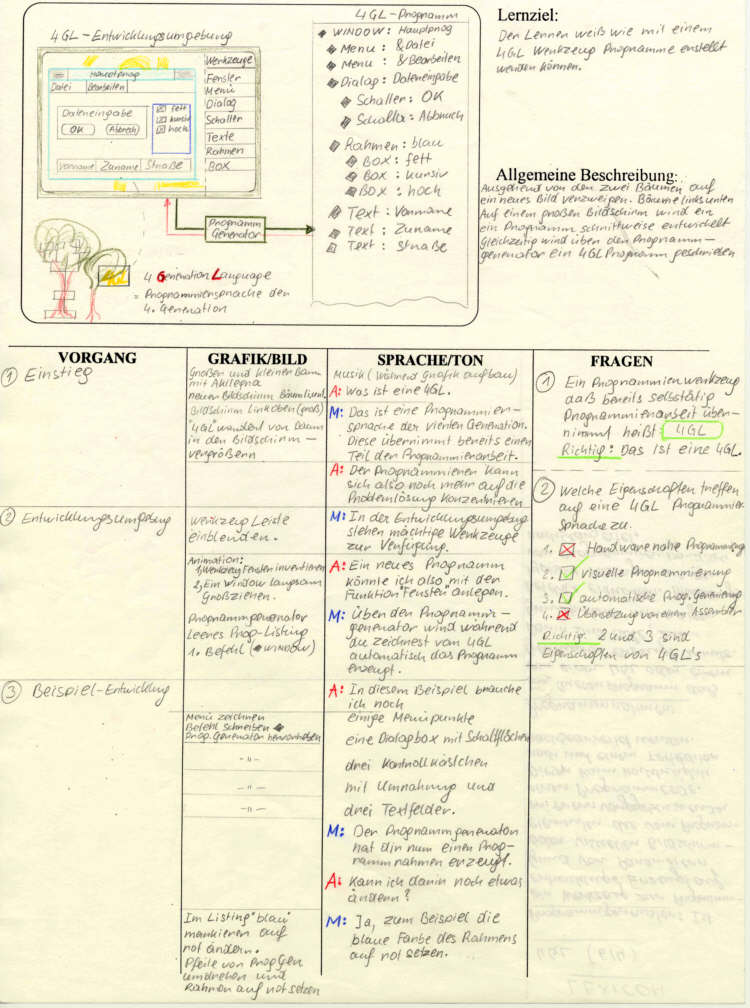 4GL-Entwicklungsumgebung
Werkzeuge
Fenster
Menü
Dialog
Schalter
Texte
Rahmen
BOX
Hauptprog
Datei Bearbeiten
Dateneingabe
OK Abbrech
fett
kursiv
hoch
Vorname Zuname Straße
Programm
Generator
4GL
4 Generation Language
= Programmiersprache der
4. Generation
4GL-Programm
WINDOW: Hauptprog
Menu : &Datei
Menu : &Bearbeiten
Dialog: Dateneingabe
Schalter : OK
Schalter : Abbruch
Rahmen : blau
BOX : fett
BOX : kursiv
BOX : hoch
Text : Vorname
Text : Zuname
Text : Straße
Lernziel:
Der Lerner weiß wie mit einem
4GL Werkzeug Programme erstellt
werden können.
Allgemeine Beschreibung:
Ausgehend von den zwei Bäumen auf
ein neues Bild verzweigen. Bäume links unten
Auf einem großen Bildschirm wird ein
ein Programm schrittweise entwickelt
Gleichzeitig wird über den Programm-
generator ein 4GL Programm geschrieben
VORGANG
① Einstieg
② Entwicklungsumgebung
③ Beispiel-Entwicklung
GRAFIK/BILD
Großen und kleinen Baum
mit
neuen Bildschirm Bäum
Bildschirm Linksoben (groß)
"4GL" wandert von Baum
in den Bildschirm-
vergrößern
Werkzeug Leiste
einblenden.
Animation:
1) Werkzeug Fenster invertieren
2) Ein Window langsam
Großziehen.
Programmgenerator
Leeres Prog-Listing
1. Befehl (WINDOW)
Menü zeichnen
Befehl schreiben
Prog. Generator hervorheben
- " -
- " -
- " -
Im Listing "blau"
markieren auf
rot ändern.
Pfeile von ProgGen
umdrehen und
Rahmen auf rot setzen
SPRACHE/TON
Musik (während Grafik aufbau)
A: Was ist eine 4GL.
M: Das ist eine Programmier-
sprache der vierten Generation.
Diese übernimmt bereits einen
Teil der Programmierarbeit.
A: Der Programmierer kann
sich also noch mehr auf die
Problemlösung konzentrieren
M: In der Entwicklungsumgebung
stehen mächtige Werkzeuge
zur Verfügung.
A: Ein neues Programm
könnte ich also mit der
Funktion Fenster anlegen.
M: Über den Programm-
generator wird während
du zeichnest vom 4GL
automatisch das Programm
erzeugt.
A: In diesem Beispiel brauche
ich noch
einige Menüpunkte
eine Dialogbox mit Schaltflächen
drei Kontrollkästchen
mit Umrahmung und
drei Textfelder.
M: Der Programmgenerator
hat dir nun einen Prog-
rammrahmen erzeugt.
A: Kann ich darin noch etwas
ändern?
M: Ja, zum Beispiel die
blaue Farbe des Rahmens
auf rot setzen.
FRAGEN
① Ein Programmierwerkzeug
daß bereits selbstätig
Programmierarbeit über-
nimmt heißt: 4GL
Richtig: Das ist eine 4GL.
② Welche Eigenschaften treffen
auf eine 4GL Programmier
sprache zu.
1. Hardwarenahe
2. visuelle Programmierung
3. automatische Prog. Generierung
4. Übersetzung von einem Assembler
Richtig: 2 und 3 sind
Eigenschaften von 4GL's